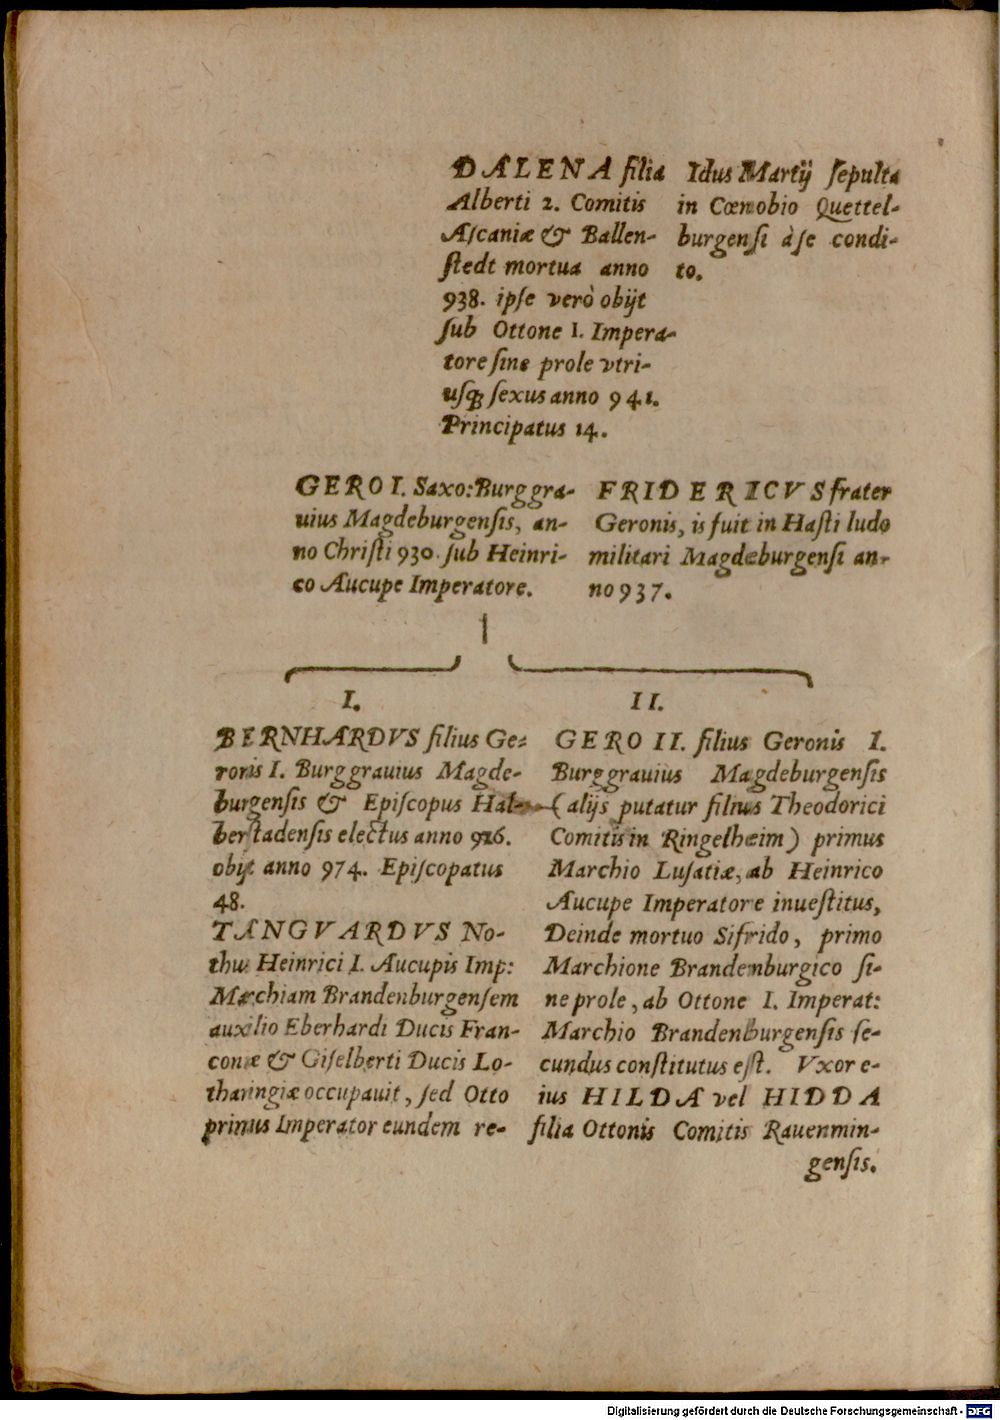 DALENA filia
Alberti 2. Comitis
Ascaniæ & Ballen-
stedt mortua anno
938. ipse verò obijt
sub Ottone I. Impera-
tore sine prole vtri-
usq; sexus anno 941.
Principatus 14.
Idus Martij sepulta
in Cœnobio Quettel-
burgensi à se condi-
to.
GERO I. Saxo: Burggra-
uius Magdeburgensis, an-
no Christi 930. sub Heinri-
co Aucupe Imperatore.
FRIDERICVS frater
Geronis, is fuit in Hasti ludo
militari Magdeburgensi an-
no 937.
I.
BERNHARDVS filius Ge-
ronis I. Burggrauius Magde-
burgensis & Episcopus Hal-
berstadensis electus anno 926.
obijt anno 974. Episcopatus
48.
TANGVARDVS No-
thus Heinrici I. Aucupis Imp:
Marchiam Brandenburgensem
auxilio Eberhardi Ducis Fran-
coniæ & Giselberti Ducis Lo-
tharingiæ occupauit, sed Otto
primus Imperator eundem re-
II.
GERO II. filius Geronis I.
Burggrauius Magdeburgensis
(alijs putatur filius Theodorici
Comitis in Ringelheim) primus
Marchio Lusatiæ, ab Heinrico
Aucupe Imperatore inuestitus,
Deinde mortuo Sifrido, primo
Marchione Brandenburgico si-
ne prole, ab Ottone I. Imperat:
Marchio Brandenburgensis se-
cundus constitutus est. Vxor e-
ius HILDA vel HIDDA
filia Ottonis Comitis Rauenmin-
gensis.
Digitalisierung gefördert durch die Deutsche Forschungsgemeinschaft - DFG